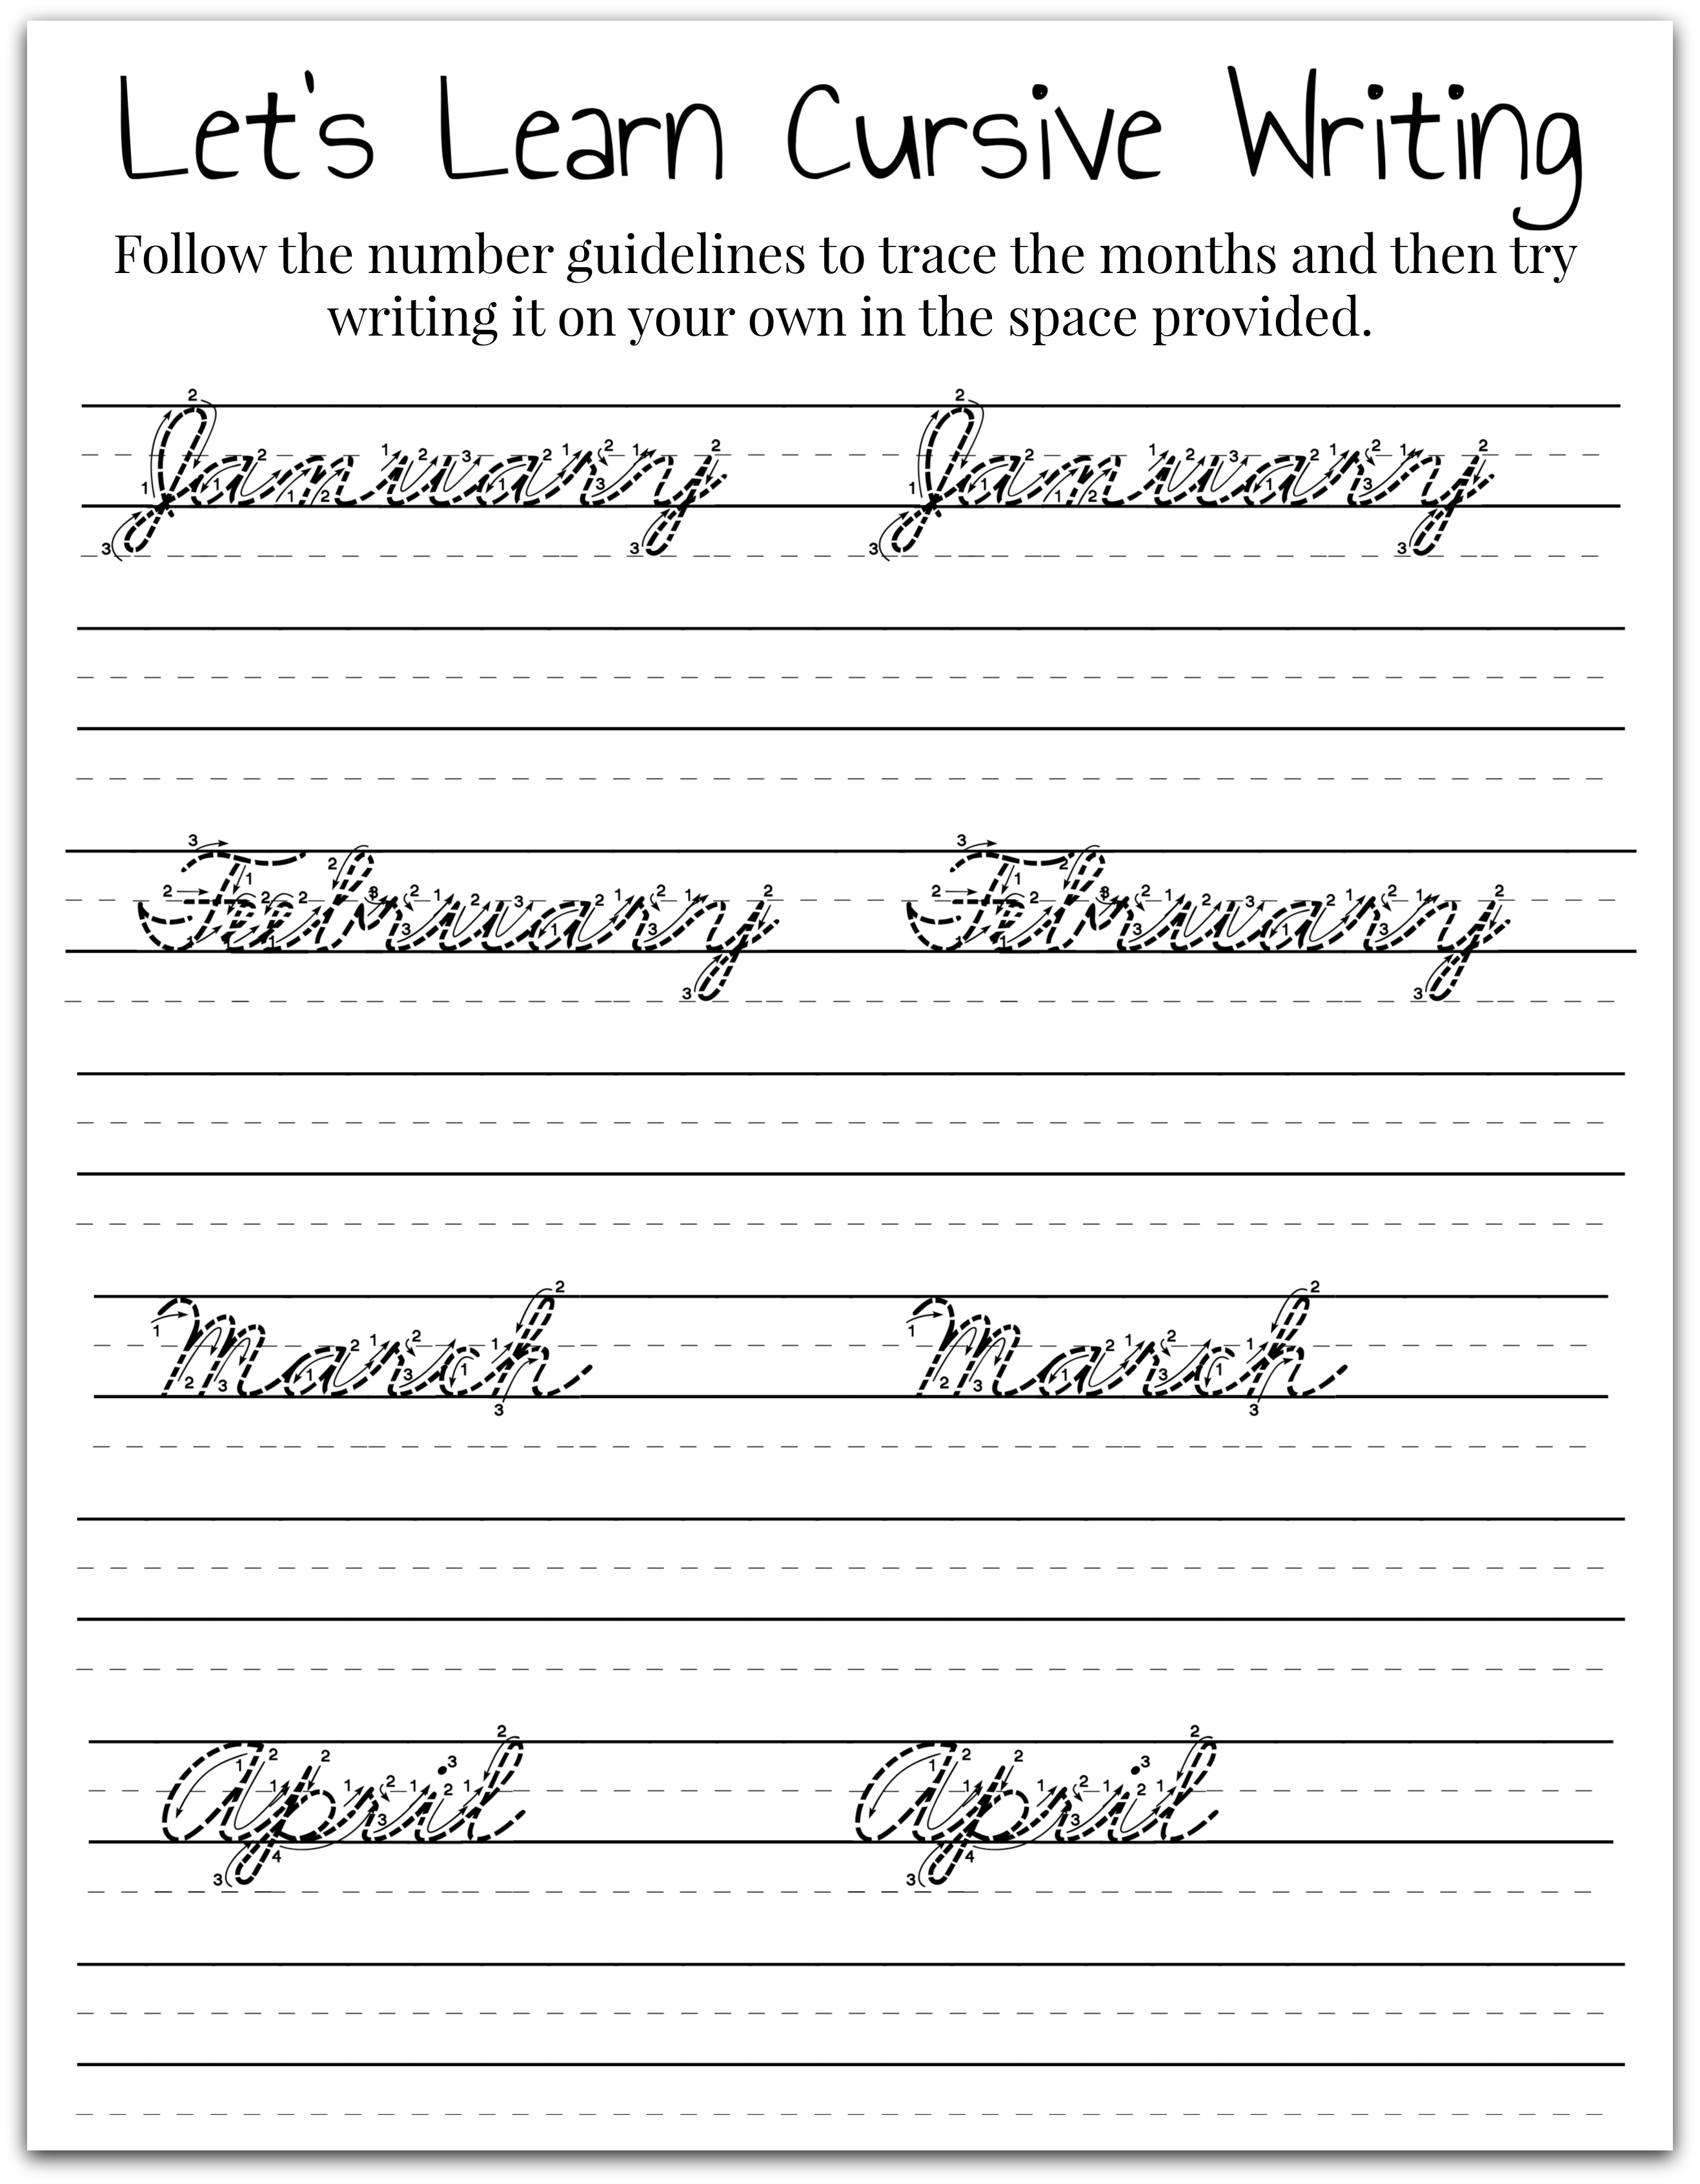 Let's Learn Cursive Writing
Follow the number guidelines to trace the months and then try
writing it on your own in the space provided.
January January
February February
March March
April April